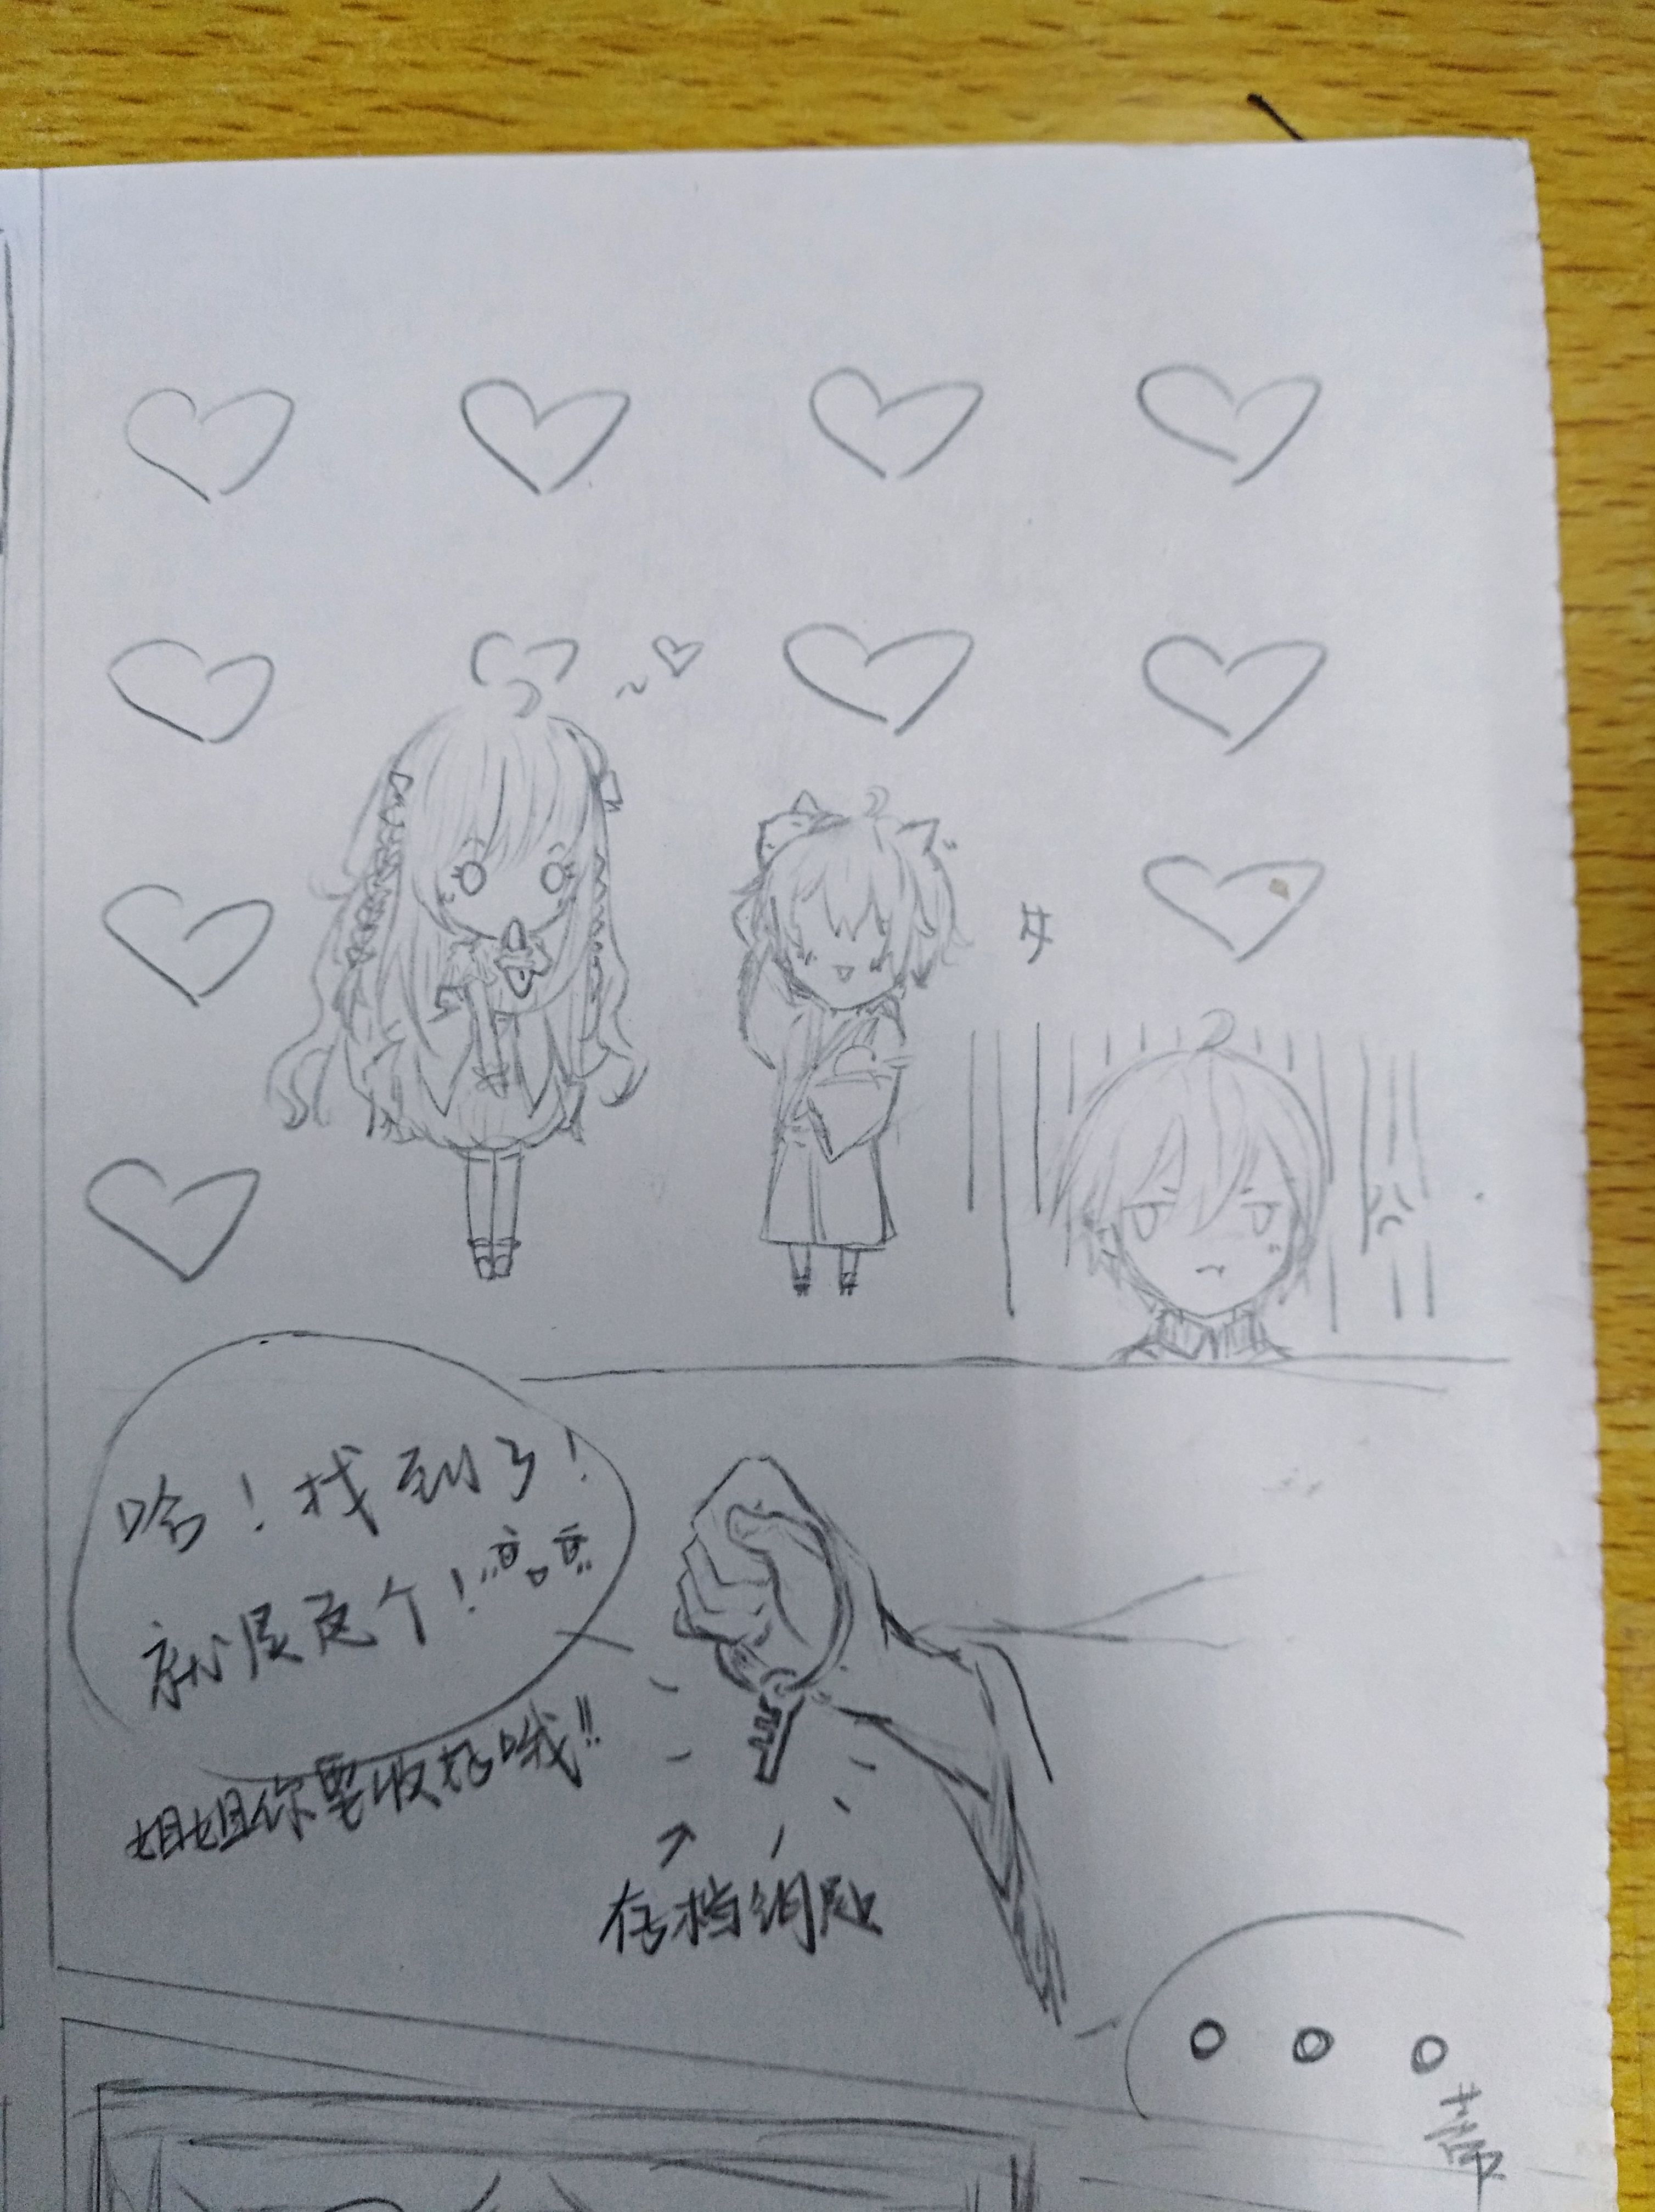 哈！找到了！
就是这个！
姐姐你要收好哦!!
存档钥匙